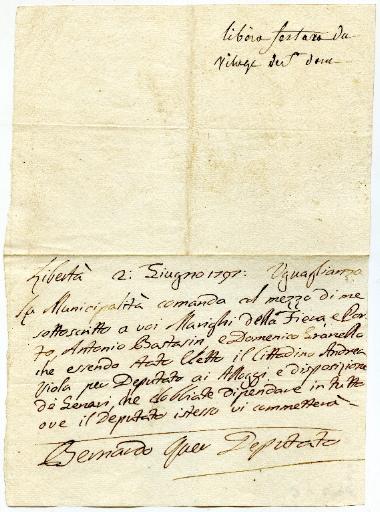 libero
vilage
Libertà 2: Giugno 1797: Uguaglianza
La Municipalità comanda col mezzo di me
sottoscritto a voi Marighi della Fiera, e Por-
to, Antonio Bastasin, e Domenico Granello
che essendo stato eletto il Cittadino Andrea
Viola per Deputato ai Alloggi e disposizione
de Generi, che dobbiate dipendere in tutto
ove il Deputato istesso vi commetterà
Bernardo Quer Deputato